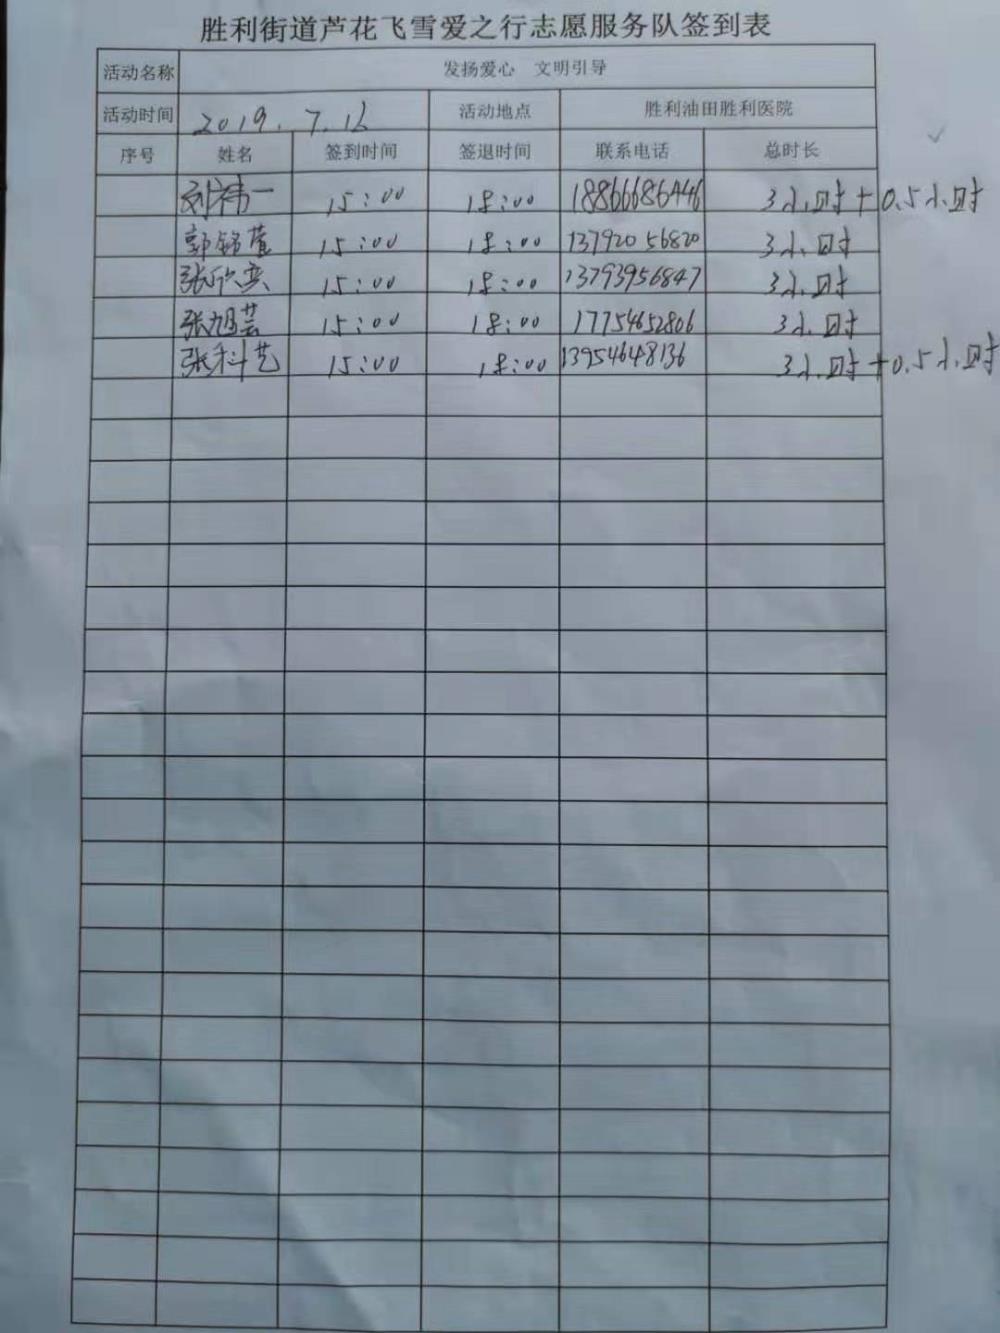 胜利街道芦花飞雪爱之行志愿服务队签到表
活动名称 发扬爱心 文明引导
活动时间 2019.7.16 活动地点 胜利油田胜利医院
序号 姓名 签到时间 签退时间 联系电话 总时长
刘祎一 15:00 18:00 18866686446 3小时+0.5小时
郭铭萱 15:00 18:00 13792056820 3小时
张欣奕 15:00 18:00 13793956847 3小时
张旭芸 15:00 18:00 17754652806 3小时
张科艺 15:00 18:00 13954648136 3小时+0.5小时